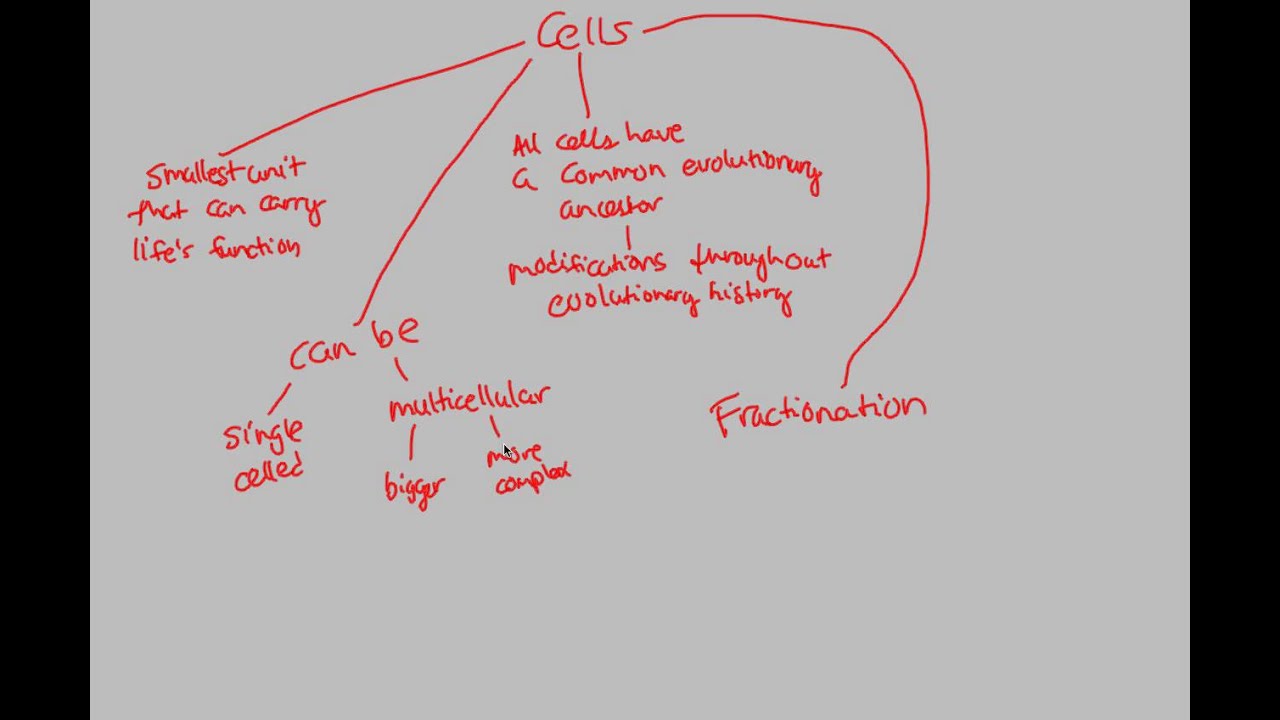 Cells
Smallest unit
that can carry
life's function
All cells have
a common evolutionary
ancestor
modifications throughout
evolutionary history
can be
single
celled
multicellular
bigger
more
complex
Fractionation